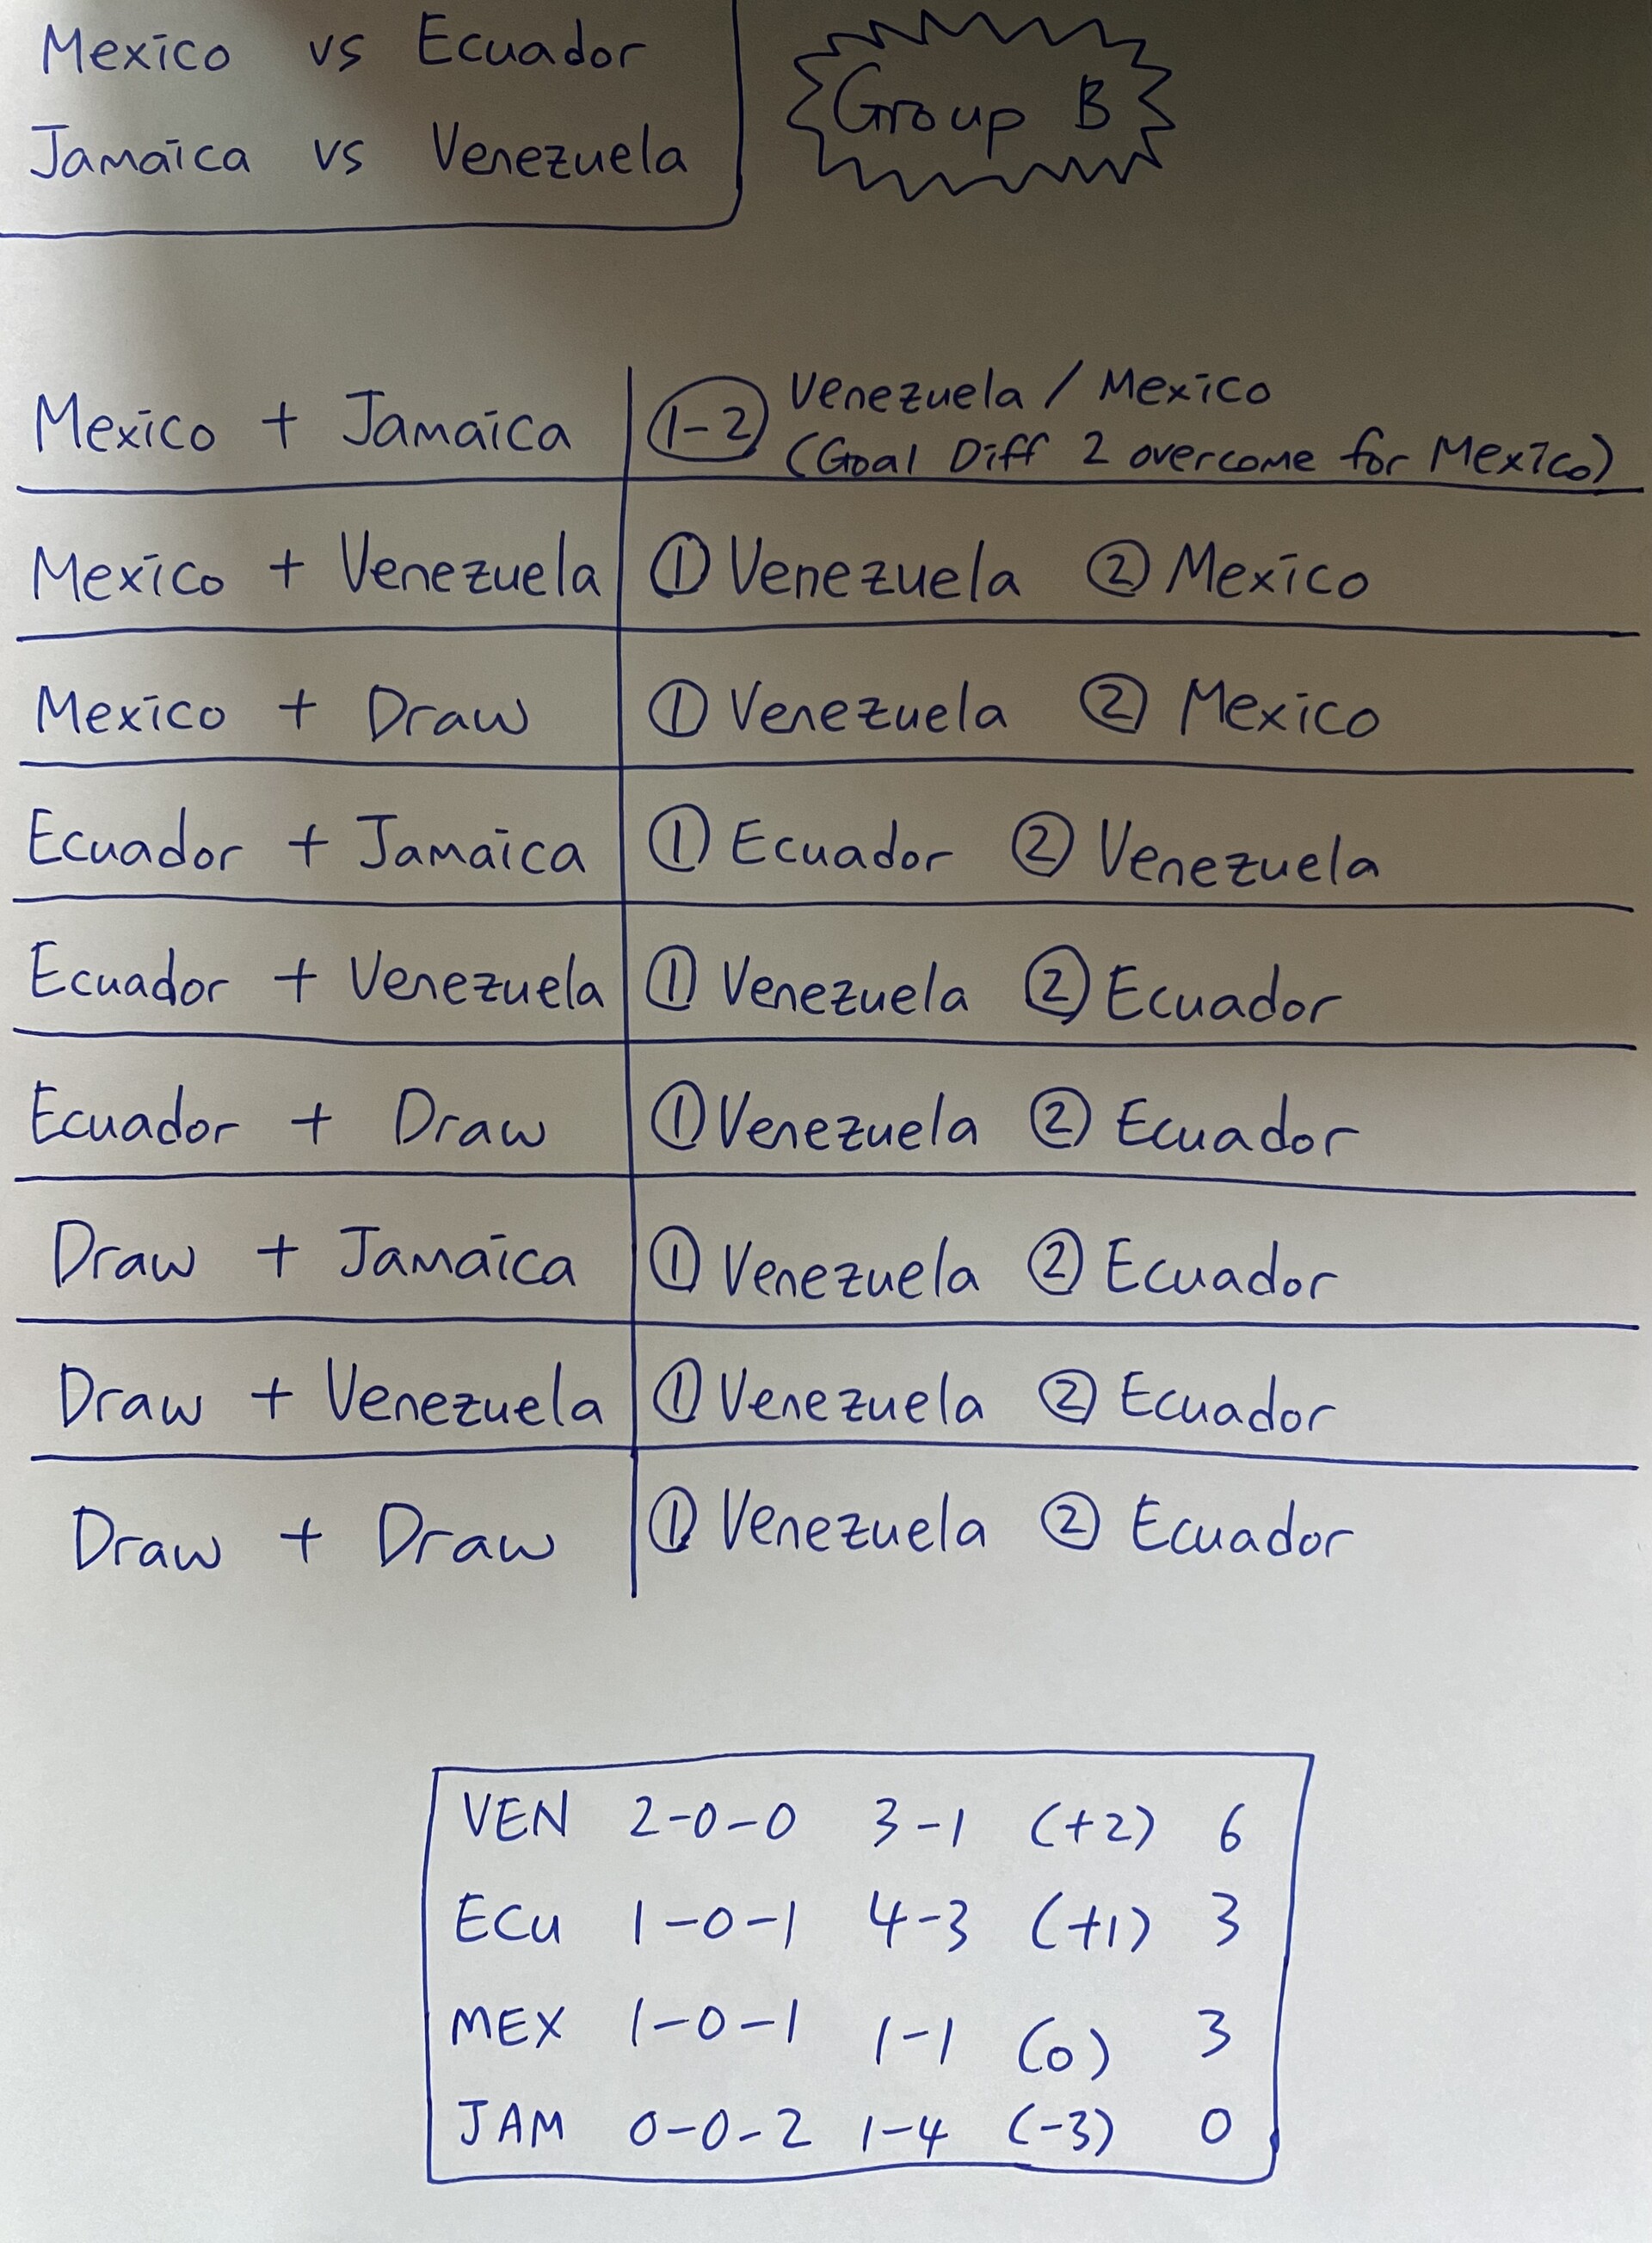 Mexico vs Ecuador
Jamaica vs Venezuela
Group B
Mexico + Jamaica 1-2 Venezuela / Mexico
(Goal Diff 2 overcome for Mexico)
Mexico + Venezuela ① Venezuela ② Mexico
Mexico + Draw ① Venezuela ② Mexico
Ecuador + Jamaica ① Ecuador ② Venezuela
Ecuador + Venezuela ① Venezuela ② Ecuador
Ecuador + Draw ① Venezuela ② Ecuador
Draw + Jamaica ① Venezuela ② Ecuador
Draw + Venezuela ① Venezuela ② Ecuador
Draw + Draw ① Venezuela ② Ecuador
VEN 2-0-0 3-1 (+2) 6
ECU 1-0-1 4-3 (+1) 3
MEX 1-0-1 1-1 (0) 3
JAM 0-0-2 1-4 (-3) 0